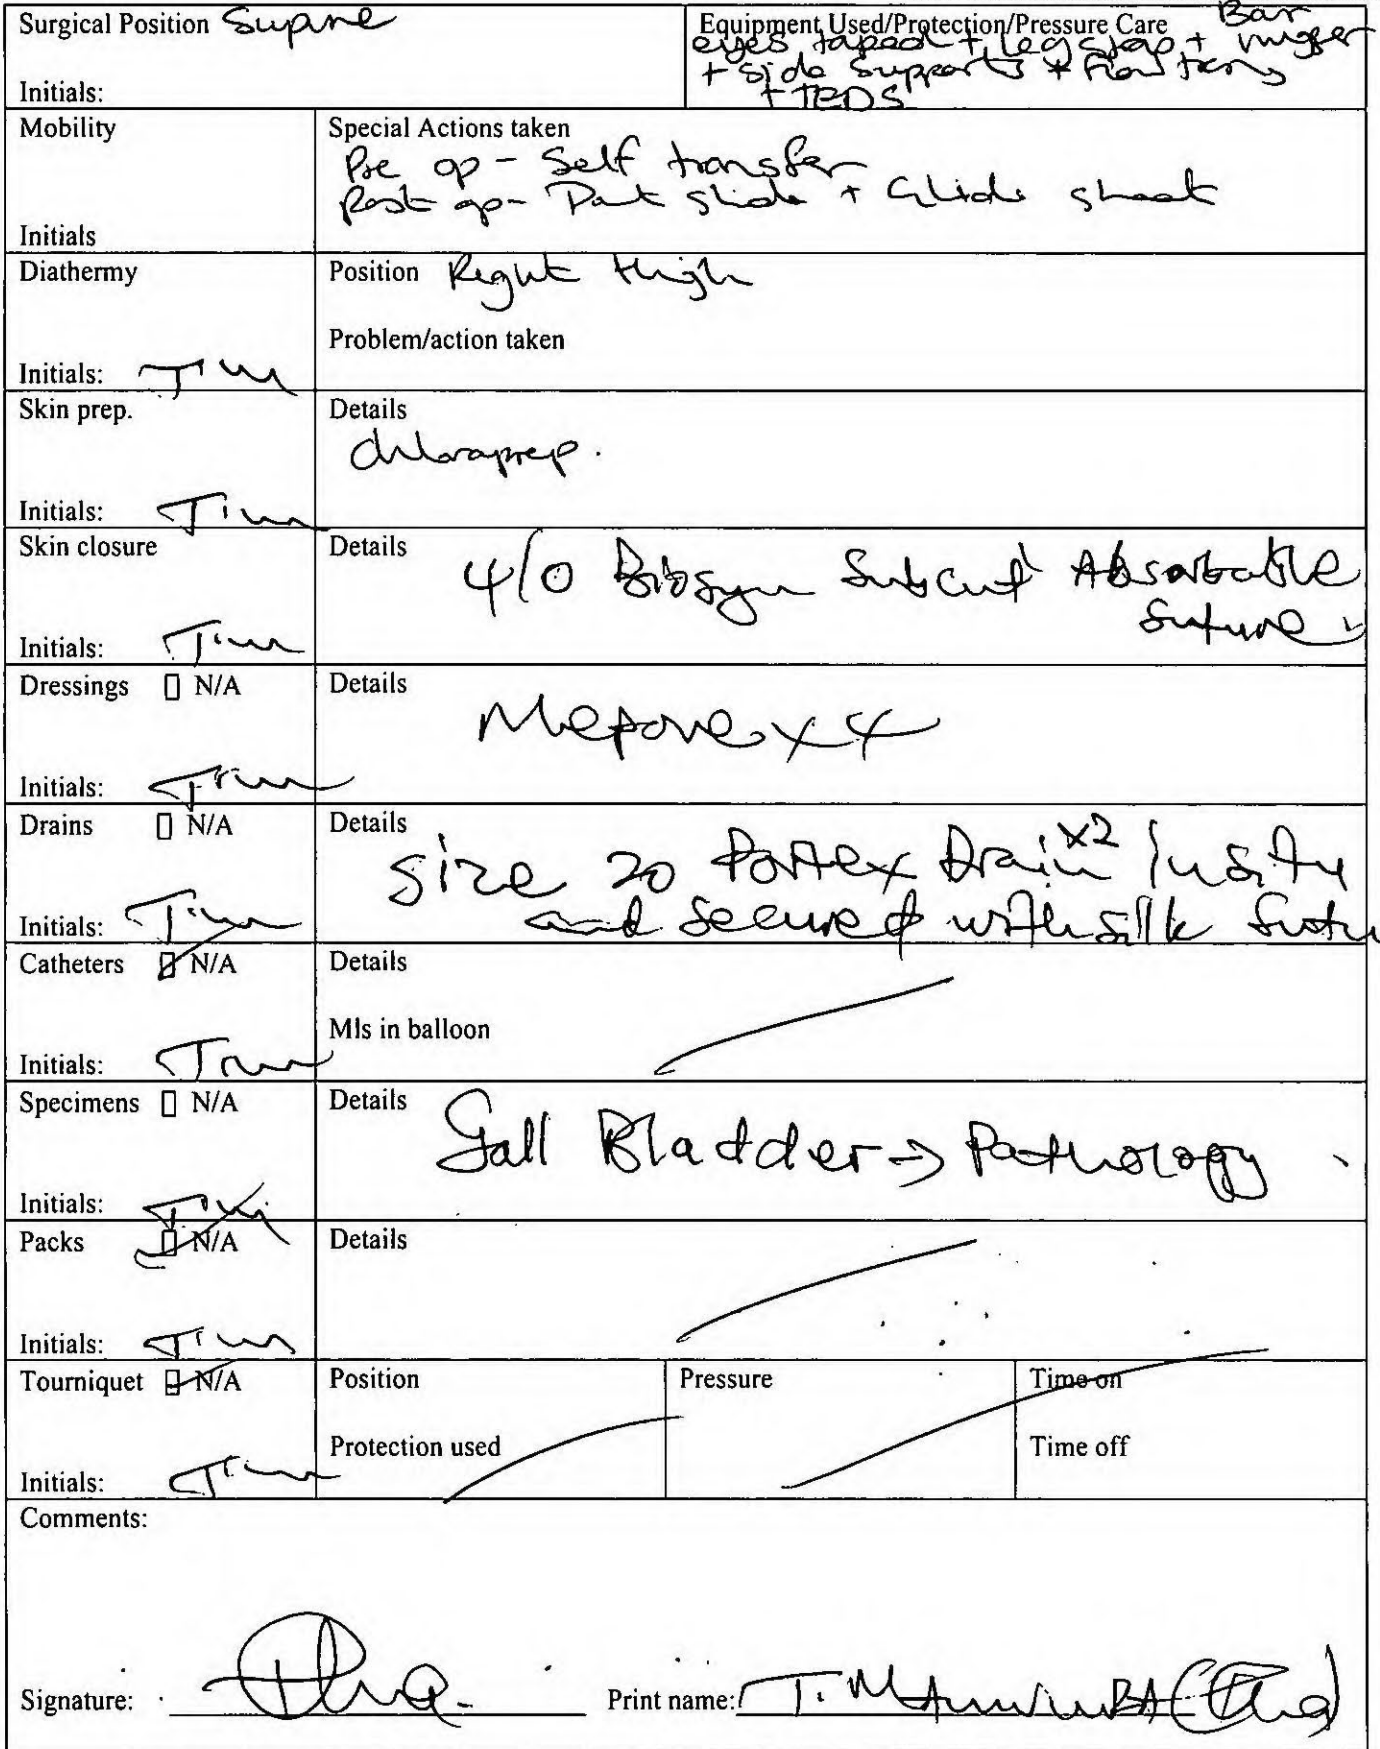 Surgical Position Supine
Initials:
Equipment Used/Protection/Pressure Care Bar
eyes taped + leg strap + hugger
+ side supports + Flowtrons
+ TEDS
Mobility
Initials
Special Actions taken
Pre op - Self transfer
Post op - Pat slide + Glide sheet
Diathermy
Initials:
Position Right thigh
Problem/action taken
Skin prep.
Initials:
Details
chloraprep.
Skin closure
Initials:
Details 4/0 Biosyn Subcut Absorbable
Suture
Dressings N/A
Initials:
Details
Mepore x 4
Drains N/A
Initials:
Details
Size 20 Portex Drain x2 Insitu
and secured with silk Sutu
Catheters N/A
Initials:
Details
Mls in balloon
Specimens N/A
Initials:
Details
Gall Bladder → Pathology
Packs N/A
Initials:
Details
Tourniquet N/A
Initials:
Position
Protection used
Pressure
Time on
Time off
Comments:
Signature:
Print name: T.